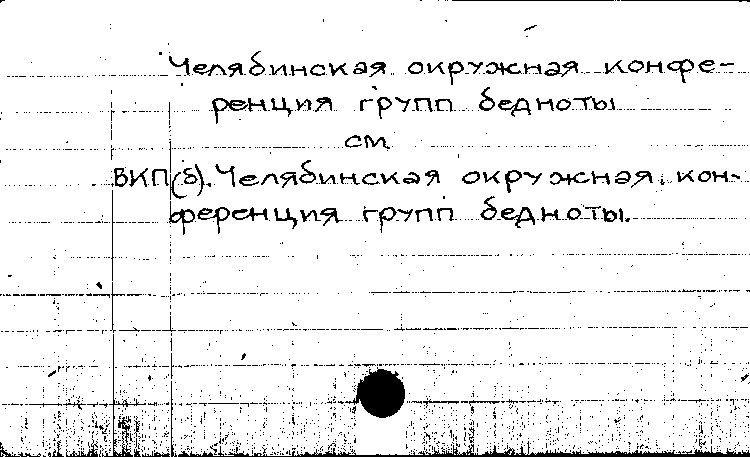 Челябинская окружная конфе-
ренция групп бедноты
см
ВКП(б). Челябинская окружная кон-
ференция групп бедноты.